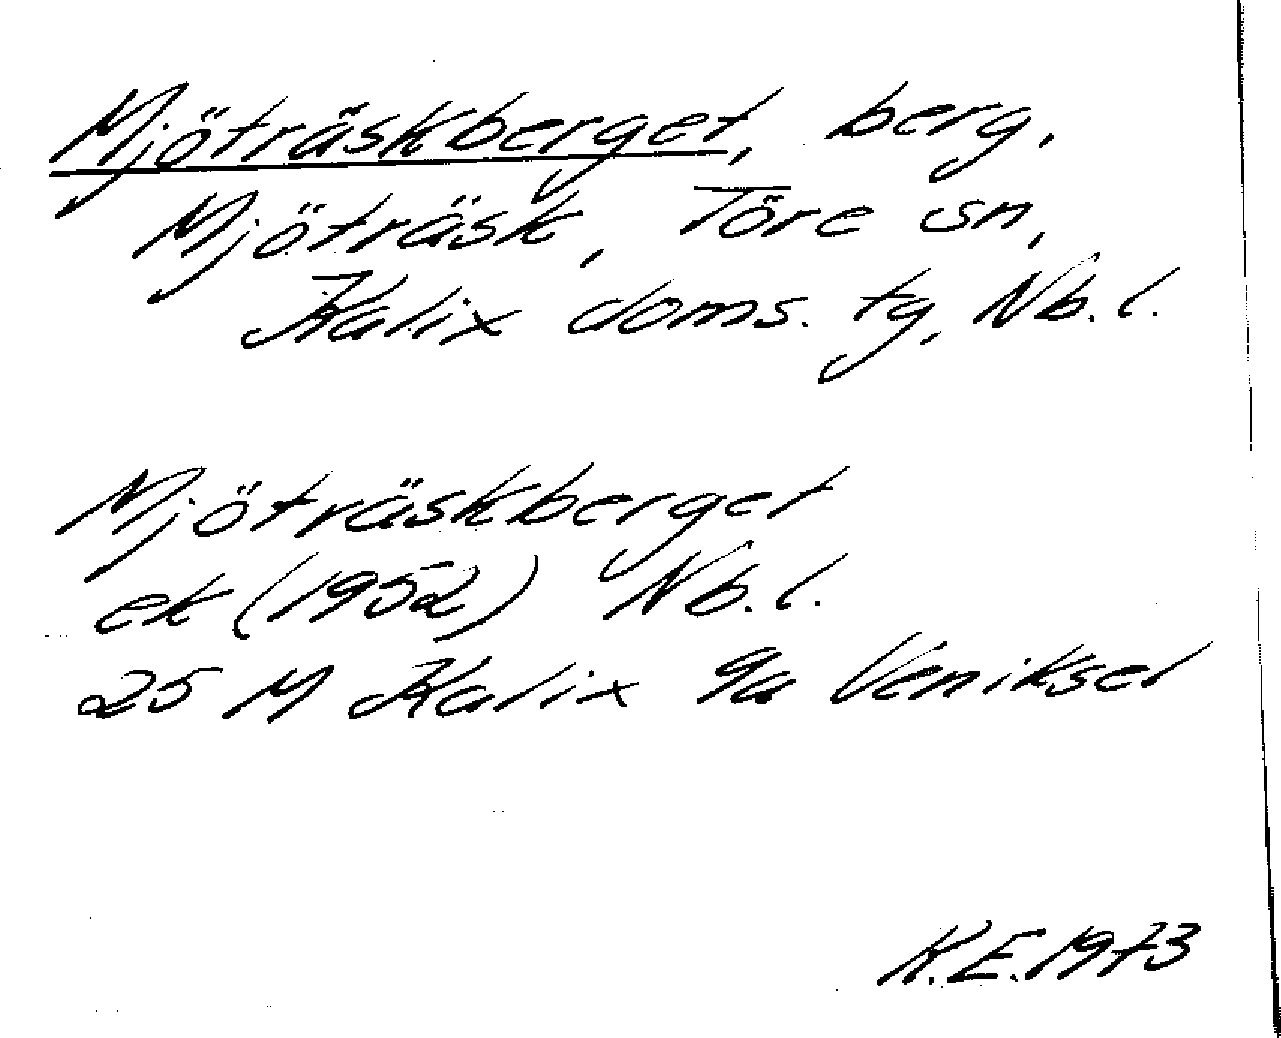 Mjöträskberget, berg,
Mjöträsk, Töre sn,
Kalix doms. tg, Nb.l.
Mjöträskberget
ek (1952) Nb.l.
25 M Kalix 9a Veniksel
K.E.1973